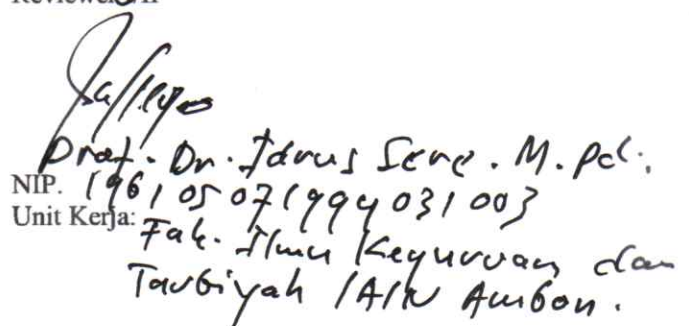 Prof. Dr. Idrus Sere. M.Pd.
NIP. 196105071994031003
Unit Kerja:
Fak. Ilmu Keguruan dan
Tarbiyah IAIN Ambon.